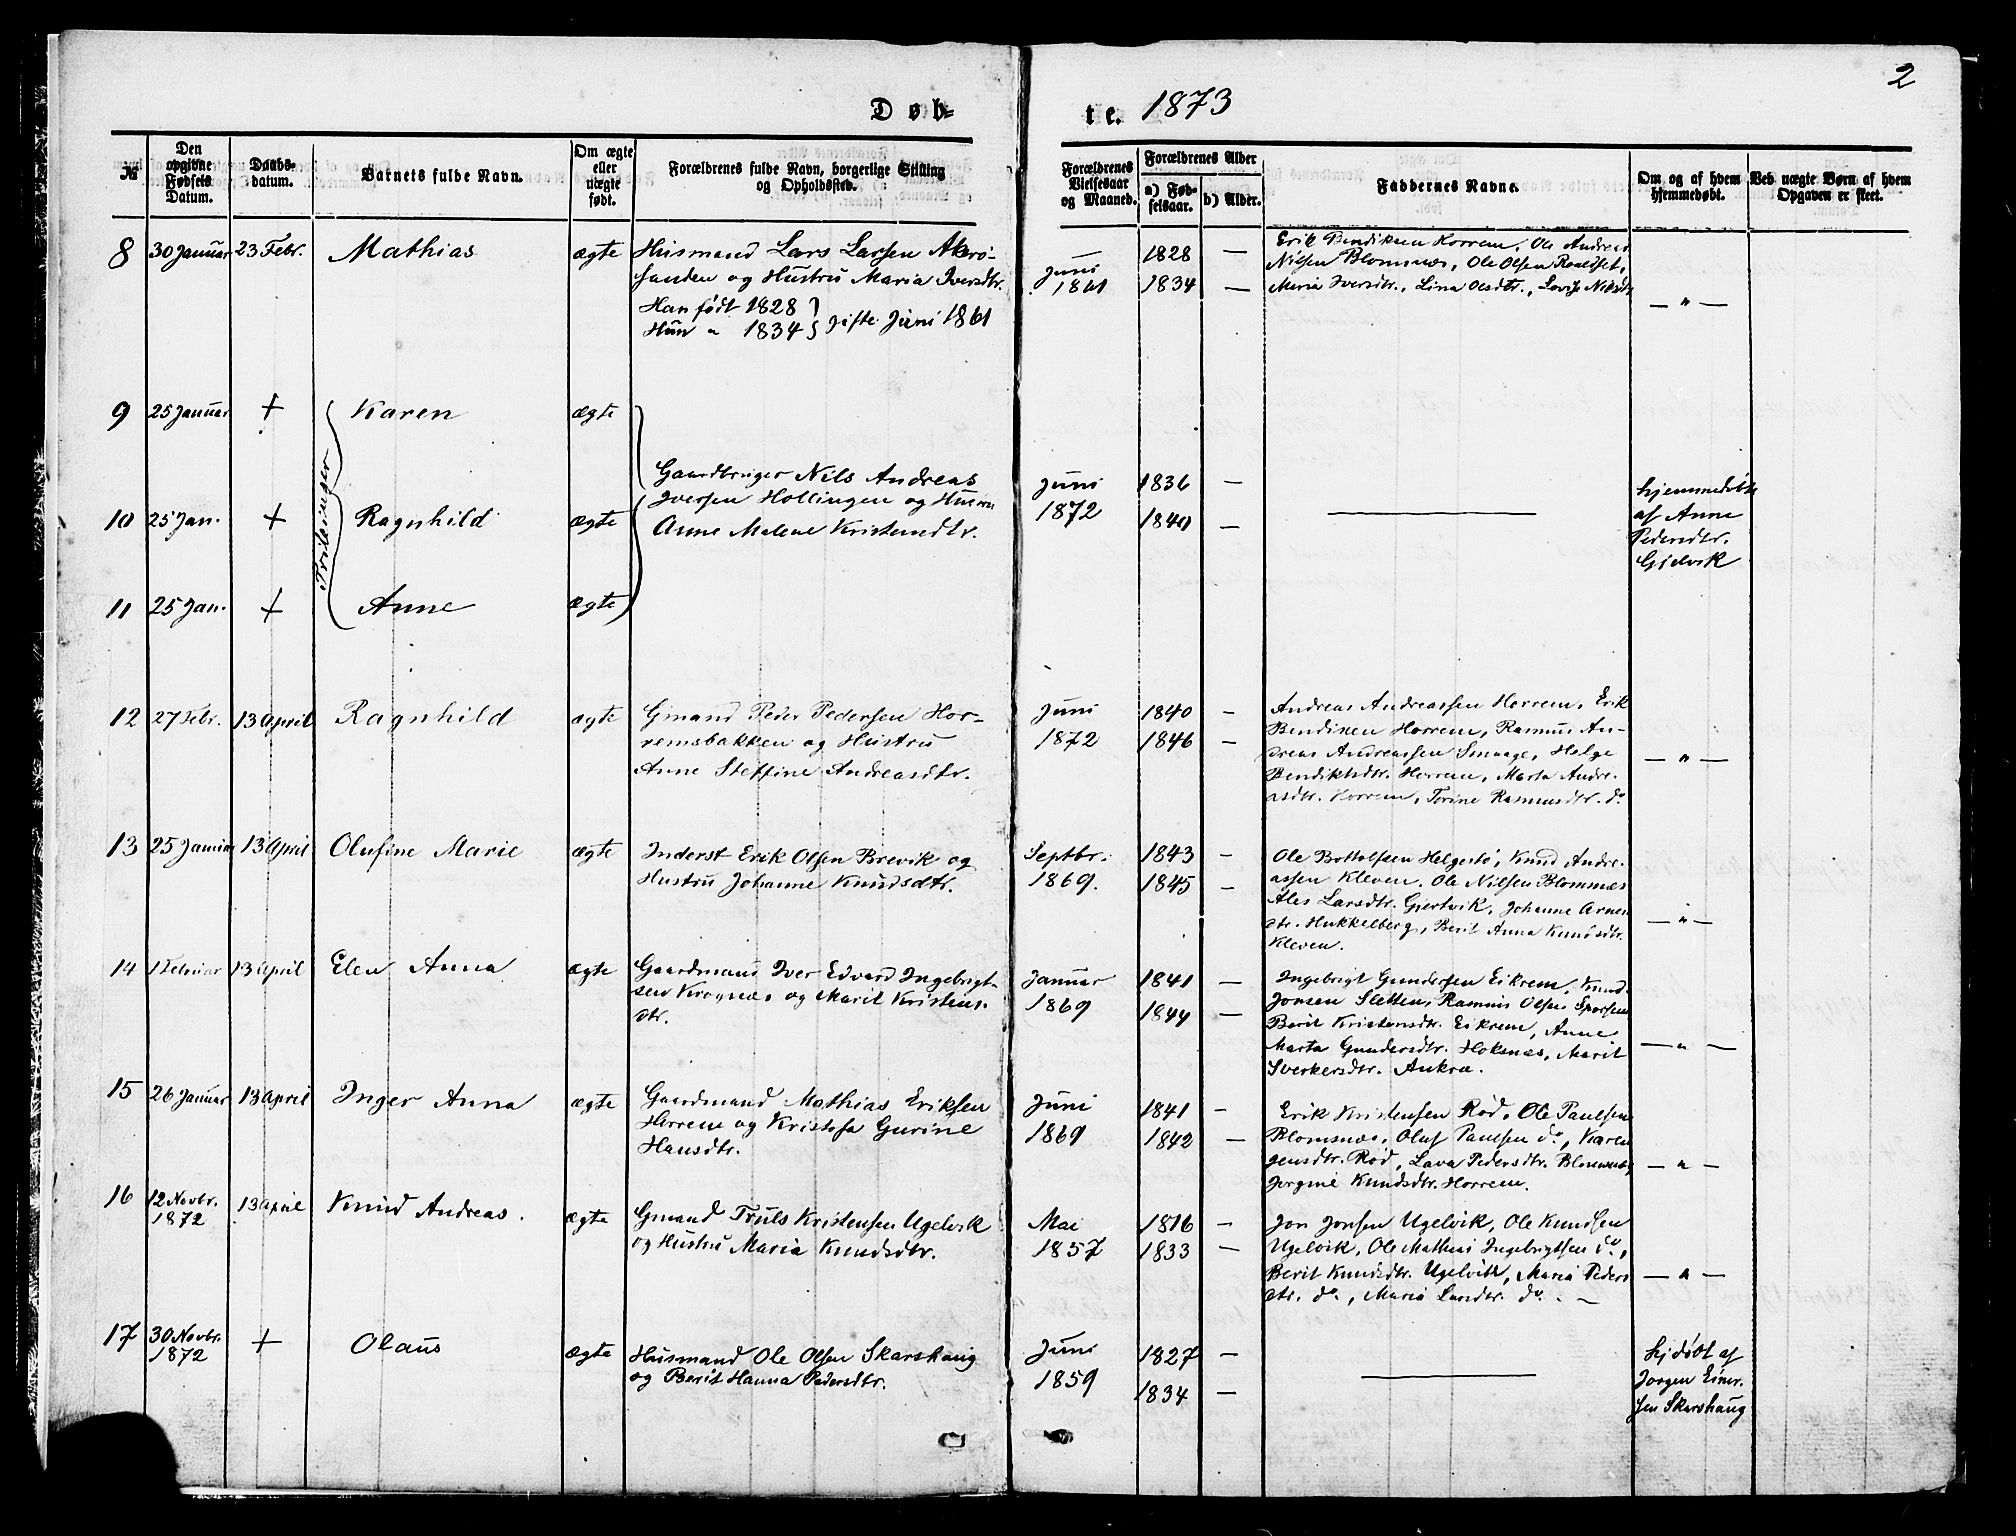 2
Døb-
te. 1873
№
Den opgivne Fødsels Datum.
Daabs-datum.
Barnets fulde Navn.
Om ægte eller uægte født.
Forældrenes fulde Navn, borgerlige Stilling og Opholdssted.
Forældrenes Vielsesaar og Maaned.
Forældrenes Alder
a) Fødselsaar.
b) Alder.
Faddernes Navne.
Om og af hvem hjemmedøbt.
Ved uægte Børn af hvem Opgaven er skeet.
8 30 Januar 23 Febr. Mathias ægte
Husmand Lars Larsen Akerø-
sanden og Hustru Maria Iversdtr.
Han født 1828
Hun " 1834 } gifte Juni 1861
Juni
1861
1828 —
1834 —
Erik Bendiksen Horrem, Ole Andreas
Nilsen Blomsnæs, Ole Olsen Roaldset,
Maria Iversdtr., Lina Olsdtr., Lovise Nilsdtr
— " —
9 25 Januar + Karen ægte
10 25 Jan. + Ragnhild ægte
11 25 Jan. + Anne ægte
Trillinger
Gaardbruger Nils Andreas
Iversen Hollingen og Hustru
Anne Malene Kristensdtr.
Juni
1872
1836 —
1840 —
hjemmedøbte
af Anne
Pedersdtr.
Gjelvik
12 27 Febr. 13 April Ragnhild ægte
Gmand Peder Pedersen Hor-
remsbakken og Hustru
Anne Steffine Andreasdtr.
Juni
1872
1840 —
1846 —
Andreas Andreassen Horrem, Erik
Bendiksen Horrem, Rasmus An-
dreas Andreassen Smaage, Helge
Bendiktsdtr. Horrem, Marta Andre-
asdtr. Horrem, Torine Rasmusdtr. do.
— " —
13 25 Januar 13 April Olufine Marie ægte
Inderst Erik Olsen Brevik og
Hustru Johanne Knudsdtr.
Septbr.
1869.
1843 —
1845 —
Ole Bottolfsen Helgestø, Knud Andre-
assen Kleven, Ole Nilsen Blomsnæs
Ales Larsdtr. Gjertvik, Johanne Arnes
dtr. Hukkelberg, Berit Anna Knudsdtr.
Kleven.
— " —
14 1 Februar 13 April Elen Anna ægte
Gaardmand Iver Edvard Ingebrigt-
sen Krognæs og Marit Kristens-
dtr.
Januar
1869
1841 —
1844 —
Ingebrigt Gundersen Eikrem, Knud
Jonsen Sletten, Rasmus Olsen
Berit Kristensdtr. Eikrem, Anne
Marta Gundersdtr. Hoksnæs, Marit
Sverkersdtr. Aukra.
— " —
15 26 Januar 13 April Inger Anna ægte
Gaardmand Mathias Eriksen
Horrem og Kristofa Gurine
Hansdtr.
Juni
1869
1841 —
1842 —
Erik Kristensen Rød, Ole Paulsen
Blomsnæs, Oluf Paulsen do., Karen
Jensdtr. Rød, Lava Pedersdtr. Blomsnæs,
Jorgine Knudsdtr. Horrem.
— " —
16 12 Novbr.
1872 13 April Knud Andreas. ægte
Gmand Truls Kristensen Ugelvik
og Hustru Maria Knudsdtr.
Mai
1857
1816 —
1833 —
Jon Jonsen Ugelvik, Ole Knudsen
Ugelvik, Ole Mathias Ingebrigtsen do.,
Berit Knudsdtr. Ugelvik, Maria Peders
dtr. do., Maria Larsdtr. do. —
— " —
17 30 Novbr.
1872 + Olaus ægte
Husmand Ole Olsen Skarshaug
og Berit Hanna Pedersdtr.
Juni
1859
1827 —
1834 —
hjdøbt af
Jørgen Einar-
sen Skarshaug